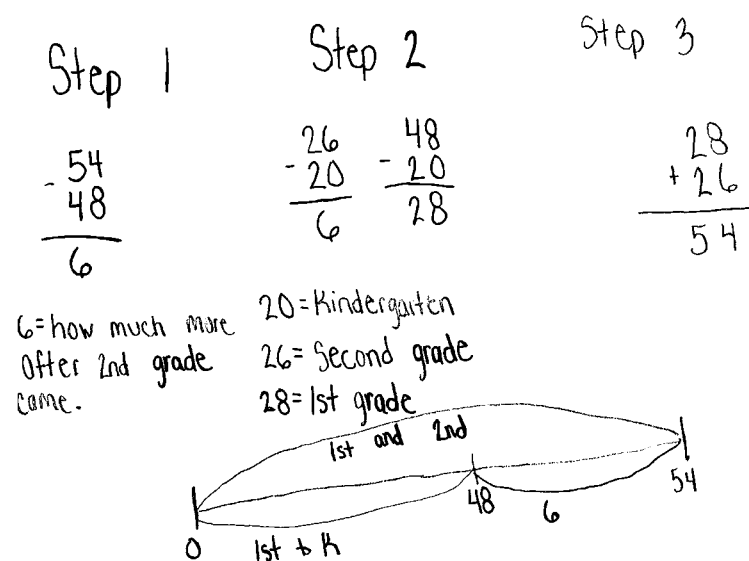 Step 1
- 54
48
6
6=how much more
after 2nd grade
came.
Step 2
26
- 20
6
48
- 20
28
20=Kindergarten
26= Second grade
28=1st grade
Step 3
28
+ 26
54
1st and 2nd
0
1st to K
48
6
54